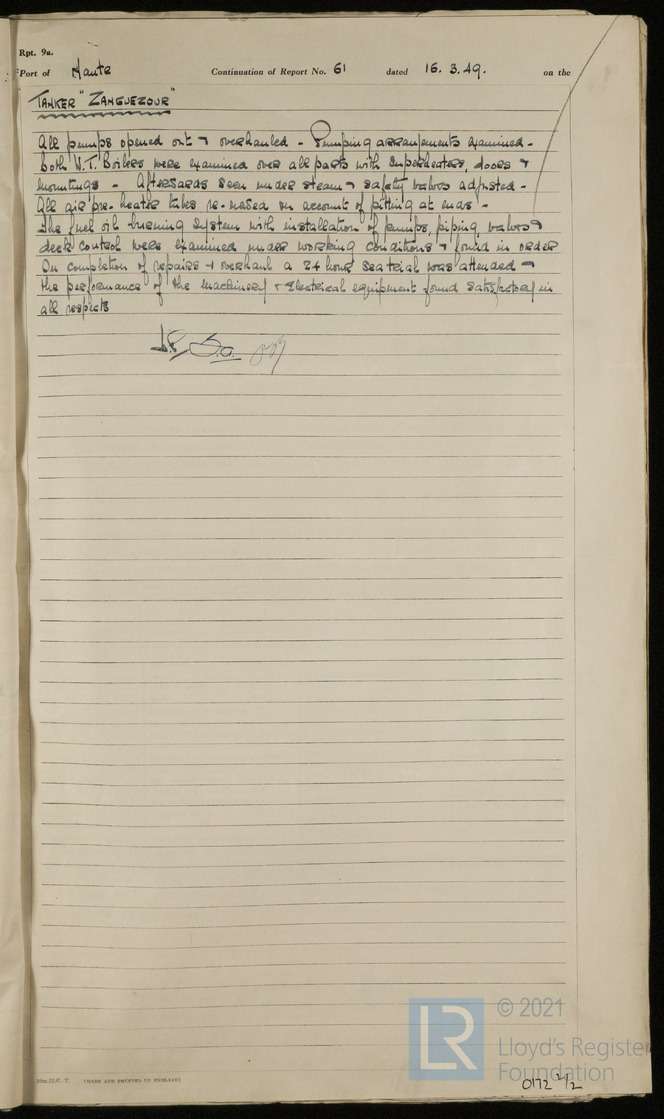 Rpt. 9a.
Port of Nantes Continuation of Report No. 61 dated 16.3.49. on the
TANKER "ZANGUEZOUR"
All pumps opened out & overhauled - Pumping arrangements examined -
both W.T. Boilers were examined over all parts with superheaters, doors &
mountings - Afterwards seen under steam & safety valves adjusted -
All air pre-heater tubes renewed on account of pitting at ends -
The fuel oil burning system with installation of pumps, piping, valves &
deck control were examined under working conditions & found in order
On completion of repairs & overhaul a 24 hour seatrial was attended &
the performance of the machinery & Electrical equipment found satisfactory in
all respects
[MADE AND PRINTED IN ENGLAND]
LR
© 2021
Lloyd's Register
Foundation
0172 2/2